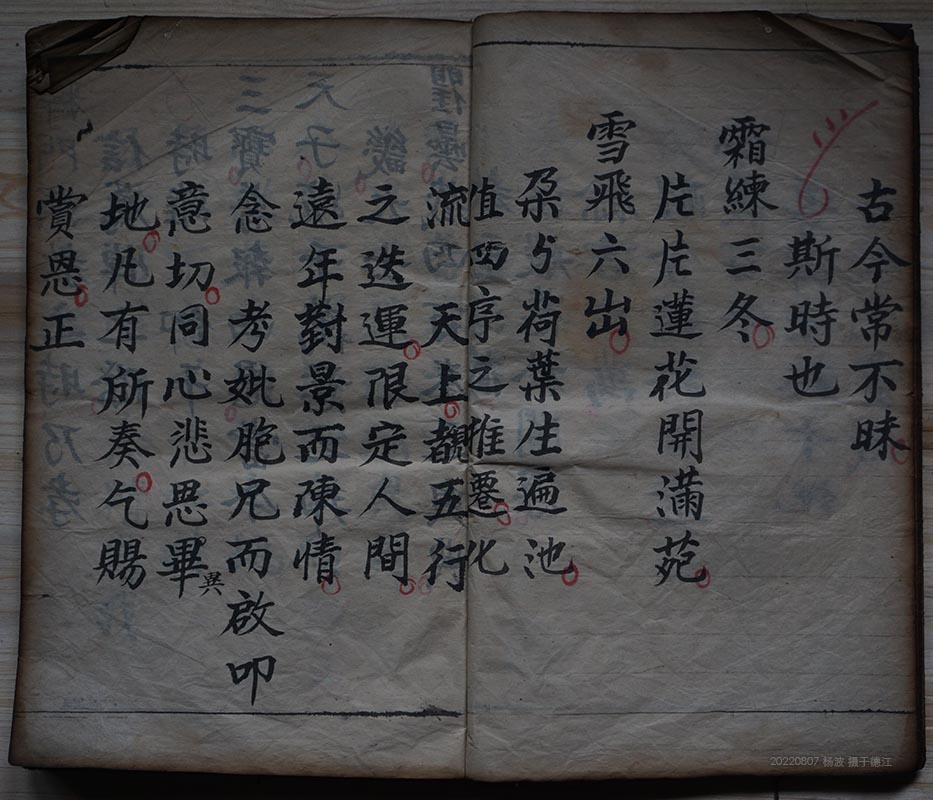 古今常不昧
斯時也
霜練三冬
片片蓮花開滿苑
雪飛六出
朶丂荷葉生遍池
值四序之推遷化
流天上覩五行
之迭運限定人間
遠年對景而陳情
念考妣胞兄而啟叩
意切同心悲思畢異
地凡有所奏乞賜
賞恩正
20220807 杨波 摄于德江